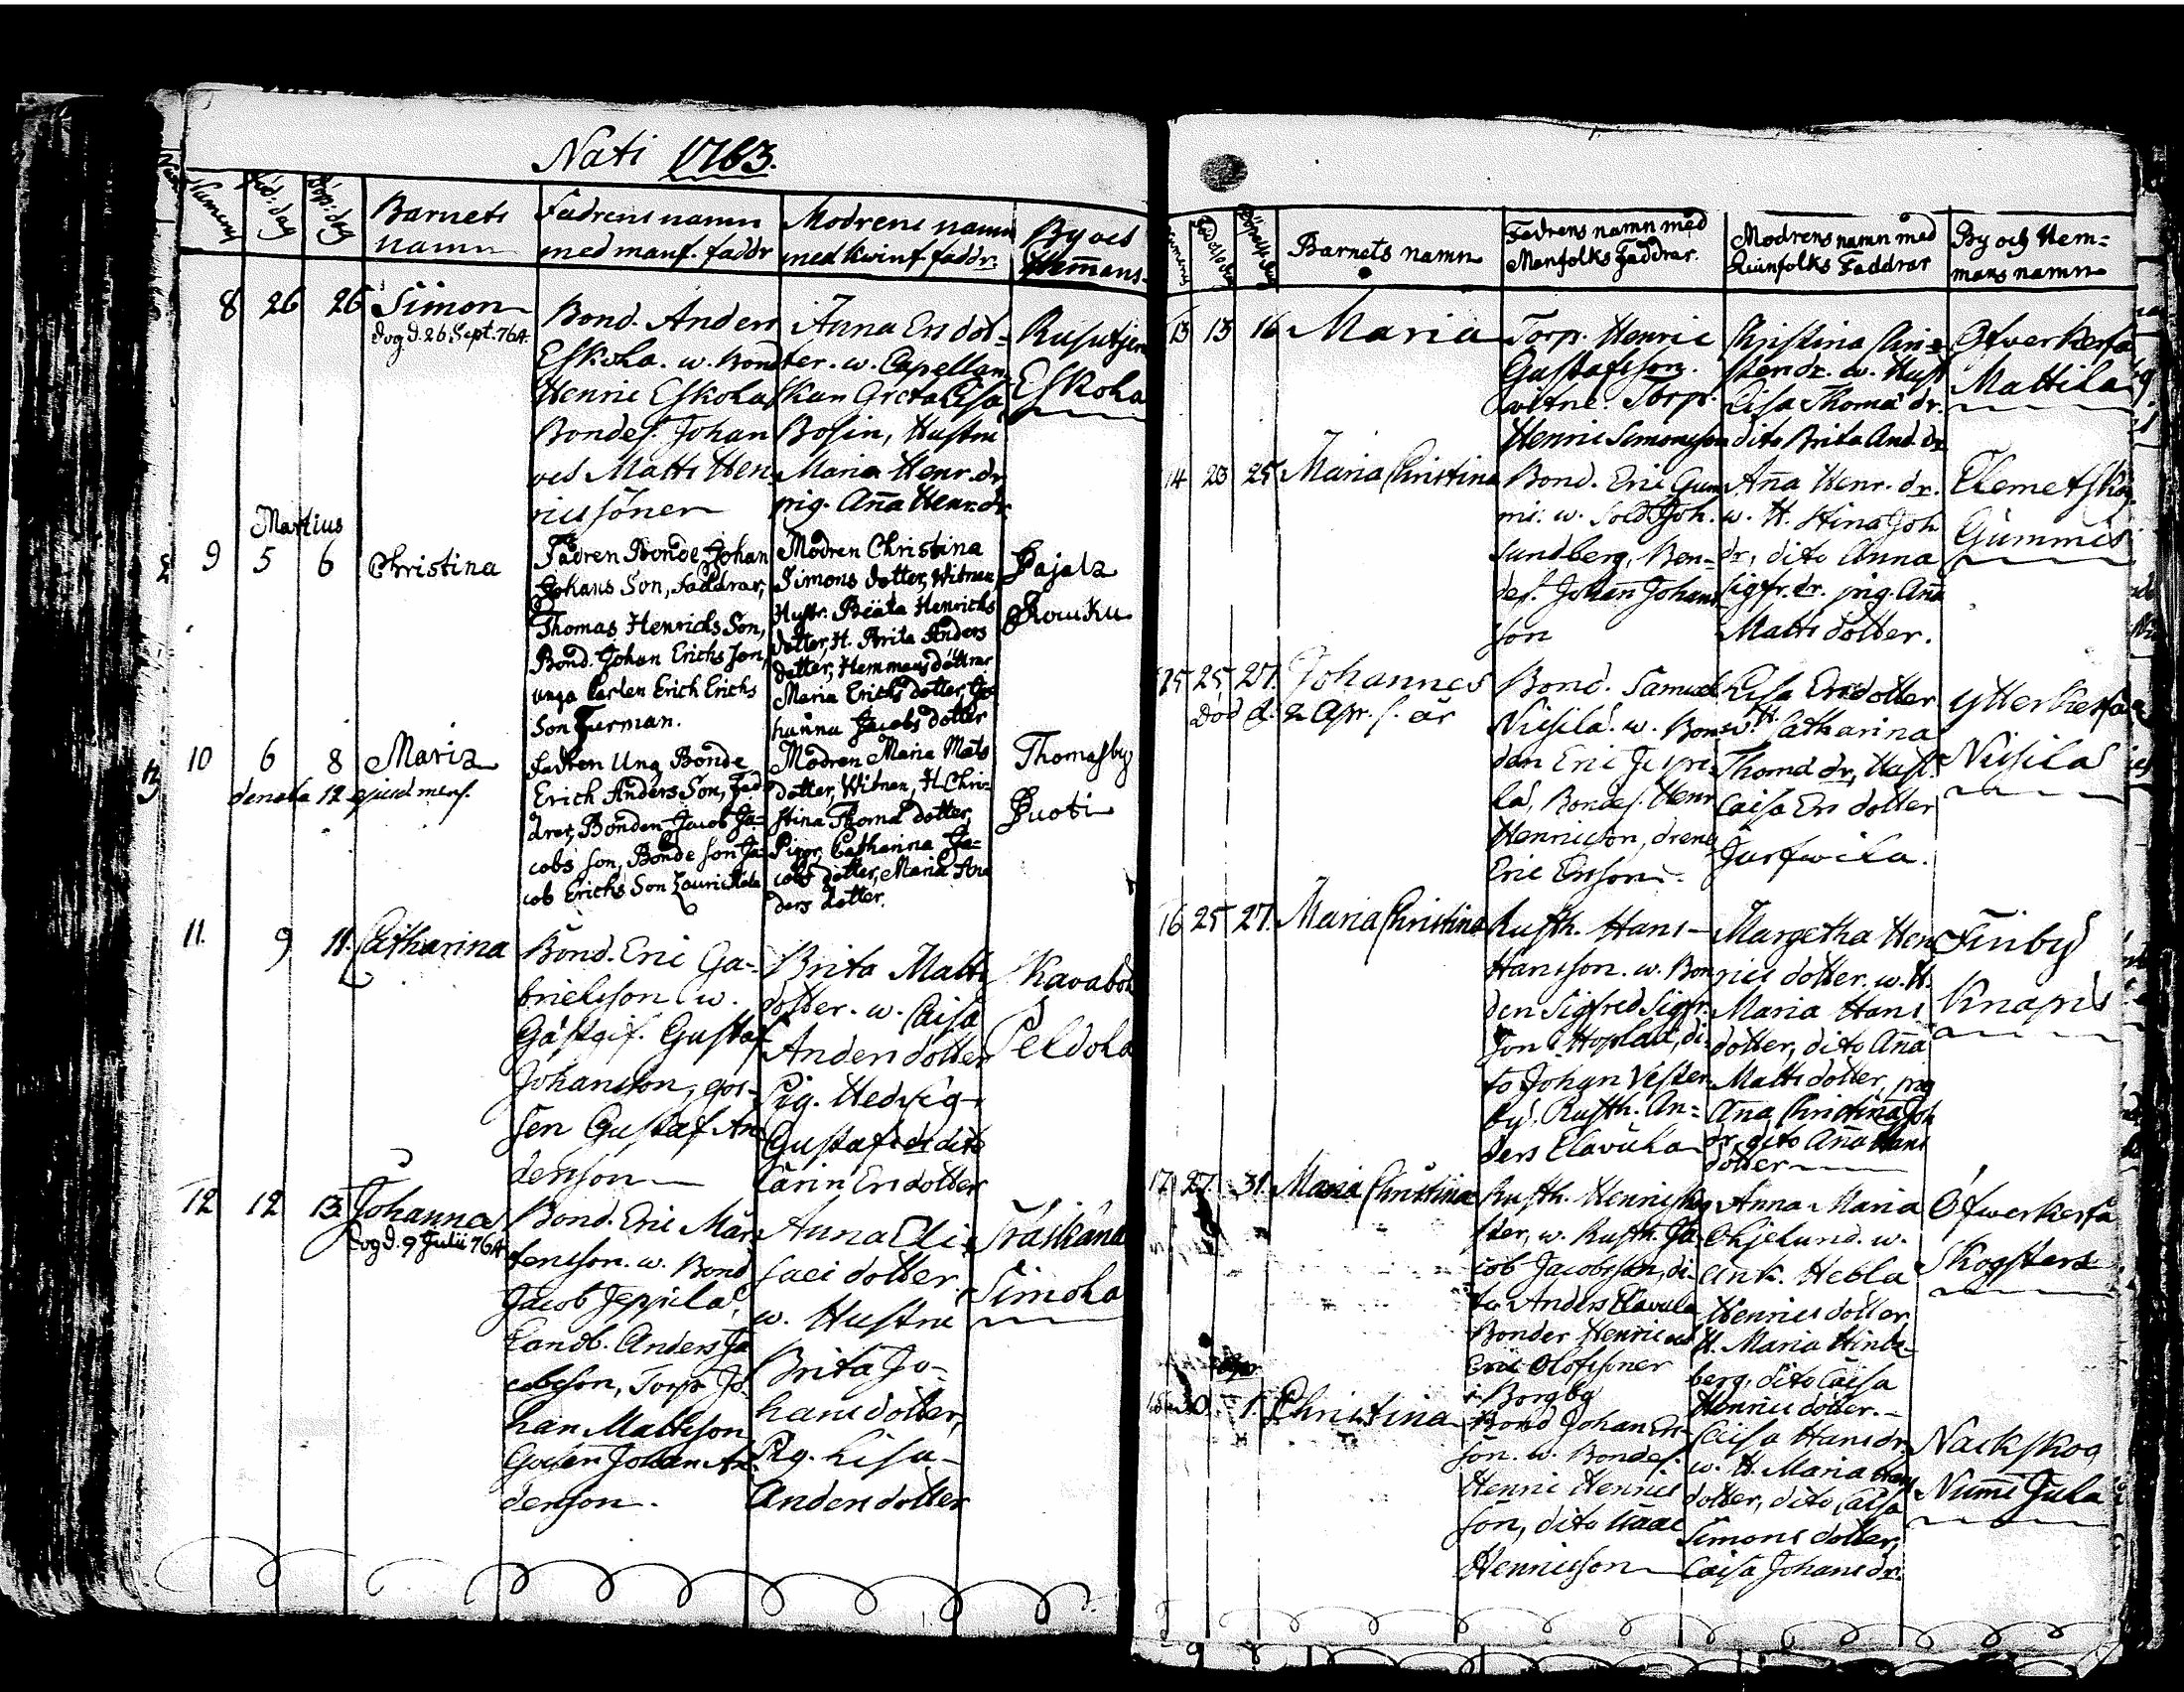 Nati 1763.
Numerus
Föd: dag
Döp: dag
Barnets namn
Fadrens namn med manf. faddr
Modrens namn med kwinf. faddr.
By och Hem̄ans
8 26 26 Simon
dog d. 26 Sept. 764.
Bond. Anders
Eskola. w. Bond
Henric Eskola
Bondes. Johan
och Matts Hen-
ricssöner
Anna Ers dot-
ter. w. Capellan
skan Greta Lisa
Bosin, Hustru
Maria Henr. dr
pig. Aña Henr. dr.
Rusutjerv
Eskola
Martius
9 5 6 Christina
Fadren Bonde Johan
Johans Son, Faddrar,
Thomas Henrichs Son,
Bond. Johan Erichs Son,
unga Karlen Erich Erichs
Son Furman.
Modren Christina
Simons dotter, Witnen
Hustr. Beata Henrichs
dotter, H. Brita Anders
dotter, Hemmans döttrar
Maria Erichs dotter, Jo-
hanna Jacobs dotter
Pajala
Rouku
10 6 8 Maria
denata 12 ejusd mens.
Fadren Ung Bonde
Erich Anders Son, Fad
drar, Bonden Jacob Ja-
cobs Son, Bonde Son Ja-
cob Erichs Son Laurickala
Modren Maria Mats
dotter, Witnen, H. Chri-
stina Thoma dotter,
Pigor, Catharina Ja-
cobs dotter, Maria An
ders dotter.
Thomasby
Puoti
11. 9 11. Catharina
Bond. Eric Ga-
brielsson w.
Gästgif. Gustaf
Johansson, gos-
sen Gustaf An
dersson
Brita Matts
dotter. w. Caisa
Anders dotter
Pig. Hedvig
Gustafs dr dito
Carin Ers dotter
Kavaböl
Peldola
12 12 13 Johannes
dog d. 9 Julii 764
Bond. Eric Mår-
tensson. w. Bond
Jacob Jeppila,
Landb. Anders Ja
cobsson, Torp. Jo-
han Mattsson
Gossen Johan An-
dersson.
Anna Eli-
saei dotter
w. Hustru
Brita Jo-
hans dotter,
Pig. Lisa
Anders dotter
Träskända
Simola
Numerus
Barnets namn
Fadrens namn med
Manfolks Faddrar.
Modrens namn med
Quinfolks Faddrar
By och Hem-
mans namn
13 13 16 Maria
Torp. Henric
Gustafsson.
witne. Torp.
Henric Simonsson
Christina Chri-
stersdr. w. Hust
Lisa Thoma dr.
dito Brita And. dr
Öfwerkerfa
Mattila
14 23 25 Maria Christina
Bond. Eric Gum
mis. w. Sold. Joh.
Sundberg, Bon-
des. Johañ Johans
son
Aña Henr. dr.
w. H. Stina Joh
dr, dito Anna
Sigfr. dr. pig. Aña
Matts dotter.
Clemetskog
Gummis
15 25 27. Johannes
Död d. 2 Apr. s. år
Bond. Samuel
Nisilä. w. Bon-
den Eric Jepri
lä, Bondes. Henr
Henricson, dreng
Eric Ersson.
Lisa Ersdotter
w. H. Catharina
Thoma dr, Hust.
Caisa Ers dotter
Jurfwila.
Ytterkerfa
Nisilä
16 25 27. Maria Christina
Rusth. Hans
Hansson. w. Bon
den Sigfred Sigfr.
son Hoplax, di-
to Johan Vester
by. Rusth. An-
ders Elavula
Margetha Hen
rics dotter. w. H.
Maria Hans
dotter, dito Aña
Matts dotter, pig
Aña Christina Joh
dr, dito Aña Hans
dotter
Finby
Knapis
17 27. 31. Maria Christina
Rusth. Henric Skog
ster, w. Rusth. Ja-
cob Jacobsson, di-
to Anders Elavula
Bonder Henric och
Eric Olofssöner
i Borgby
Anna Maria
w.
Änk. Hebla
Henrics dotter,
H. Maria Hinds-
berg, dito Caisa
Henrics dotter.
Öfwerkerfa
Skogsters
18 30. 1. Christina
Bond Johan Ers
son. w. Bondes.
Henric Henrics
son, dito Isaac
Henricsson
Caisa Hansdr.
w. H. Maria
dotter, dito Caisa
Simons dotter,
Caisa Johans dr.
Nackskog
Num̄i Jula